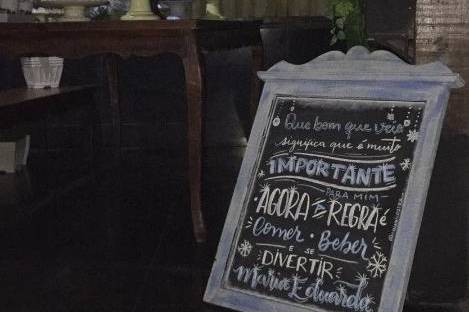 Que bom que veio
significa que é muito
IMPORTANTE
PARA MIM
AGORA A REGRA é
Comer • Beber
E SE
DIVERTIR
Maria Eduarda